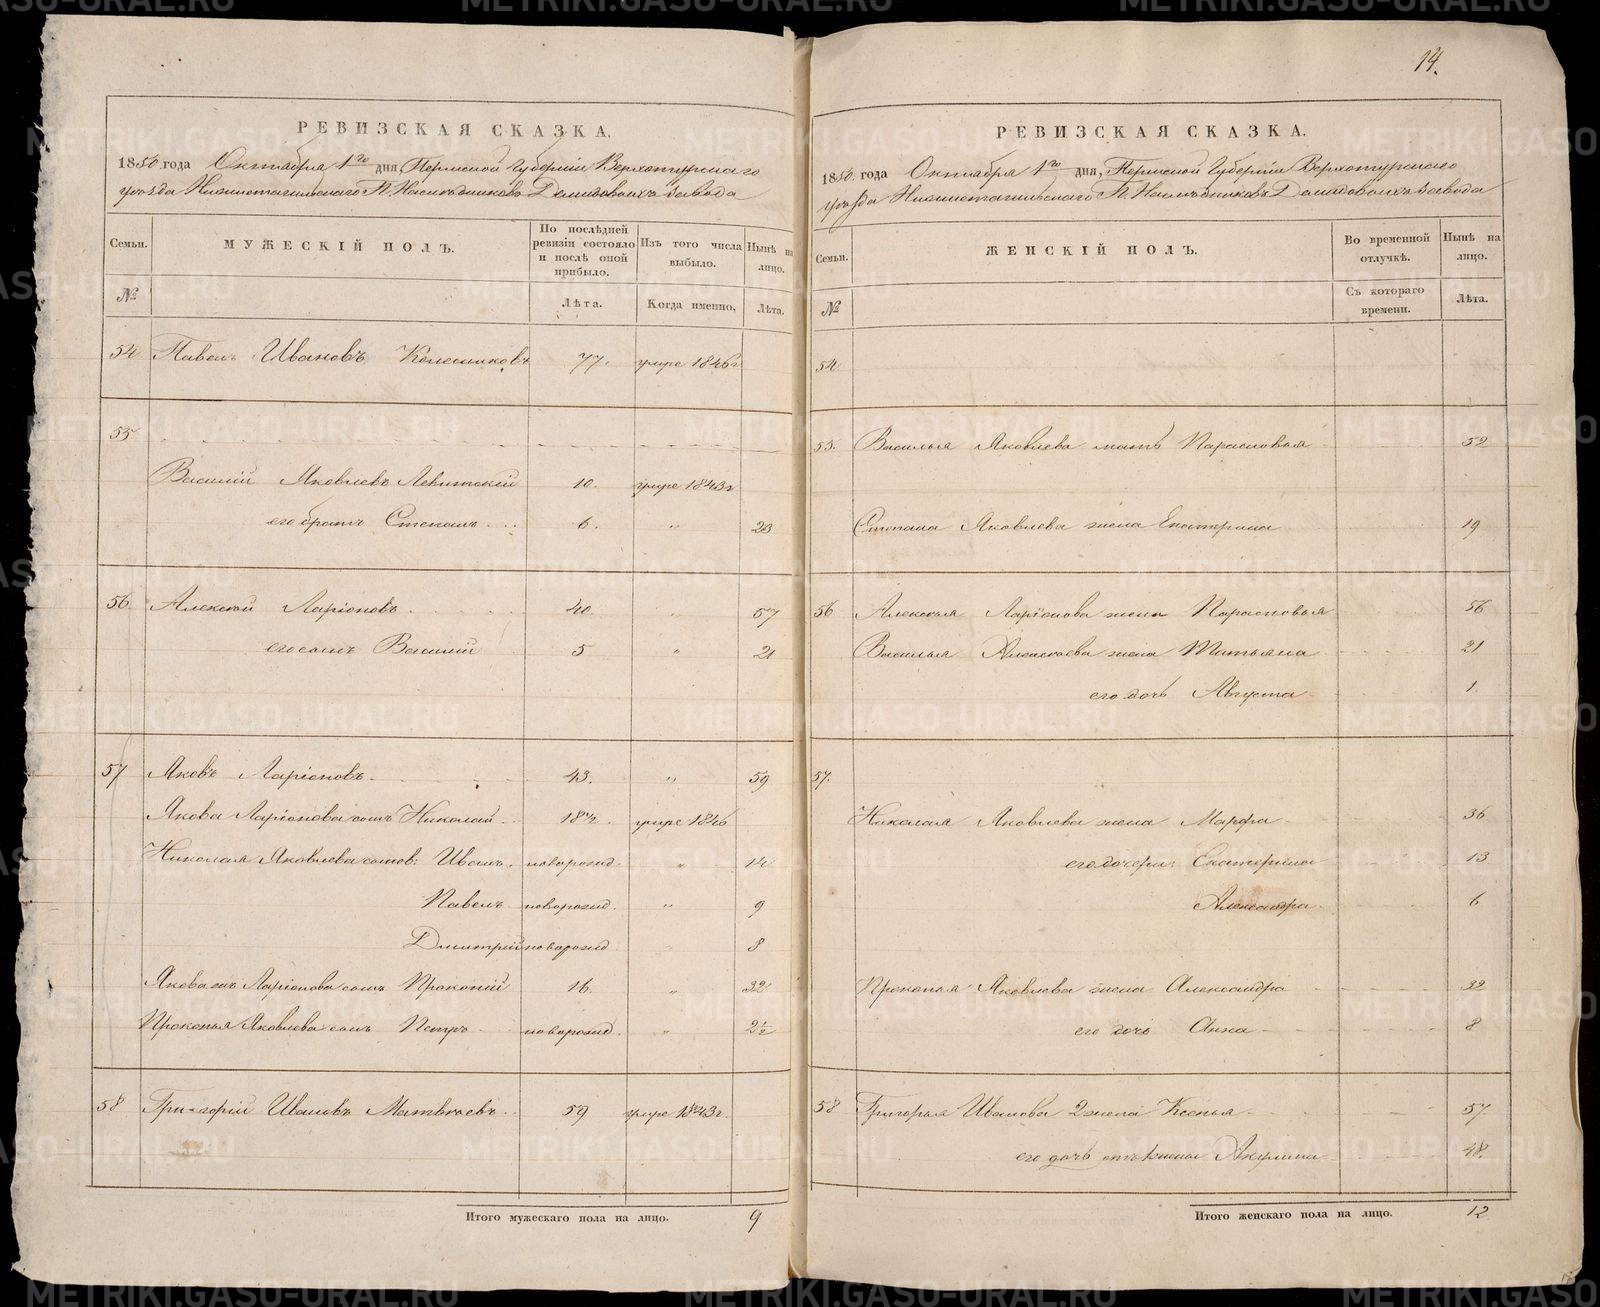 14.
РЕВИЗСКАЯ СКАЗКА.
1850 года Октября 1го дня, Пермской Губерніи Верхотурскаго
уѣзда Нижнетагильскаго Г.Г. Наслѣдниковъ Демидовыхъ завода
Семьи.
МУЖЕСКІЙ ПОЛЪ.
По послѣдней ревизіи состояло и послѣ оной прибыло.
Изъ того числа выбыло.
Нынѣ на лицо.
№
Лѣта.
Когда именно.
Лѣта.
54 Павелъ Ивановъ Колесниковъ 77. умре 1846г
55
Василій Яковлевъ Левитскій 10. умре 1843г
его братъ Степанъ 6. „ 23
56. Алексѣй Ларіоновъ 40. „ 57
его сынъ Василій 5 „ 21
57 Яковъ Ларіоновъ 43. „ 59
Якова Ларіонова сынъ Николай 18½. умре 1846
Николая Яковлева сынов: Иванъ. новорожд. „ 14
Павелъ новорожд. „ 9
Дмитрій новорожд „ 8
Ларіонова сынъ Прокопій 16. „ 32
Прокопья Яковлева сынъ Петръ новорожд. „ 2½
58 Григорій Ивановъ Матвѣевъ 59 умре 1843г.
Итого мужескаго пола на лицо. 9
РЕВИЗСКАЯ СКАЗКА.
1850. года Октября 1го дня, Пермской Губерніи Верхотурскаго
уѣзда Нижнетагильскаго Г.Г. Наслѣдниковъ Демидовыхъ завода
Семьи.
ЖЕНСКІЙ ПОЛЪ.
Во временной отлучкѣ.
Нынѣ на лицо.
№
Съ котораго времени.
Лѣта.
54
55. Василья Яковлева мать Парасковья 52
Степана Яковлева жена Екатерина 19
56 Алексѣя Ларіонова жена Парасковья 56
Василья Алексѣева жена Татьяна 21
его дочь Августа 1.
57.
Николая Яковлева жена Марфа 36
его дочери: Екатерина 13
Александра 6
Прокопья Яковлева жена Александра 32
его дочь Анна 8
58 Григорья Иванова 2 жена Ксенья 57
его дочь отъ жены Акулина 48.
Итого женскаго пола на лицо. 12
METRIKI.GASO-URAL.RU